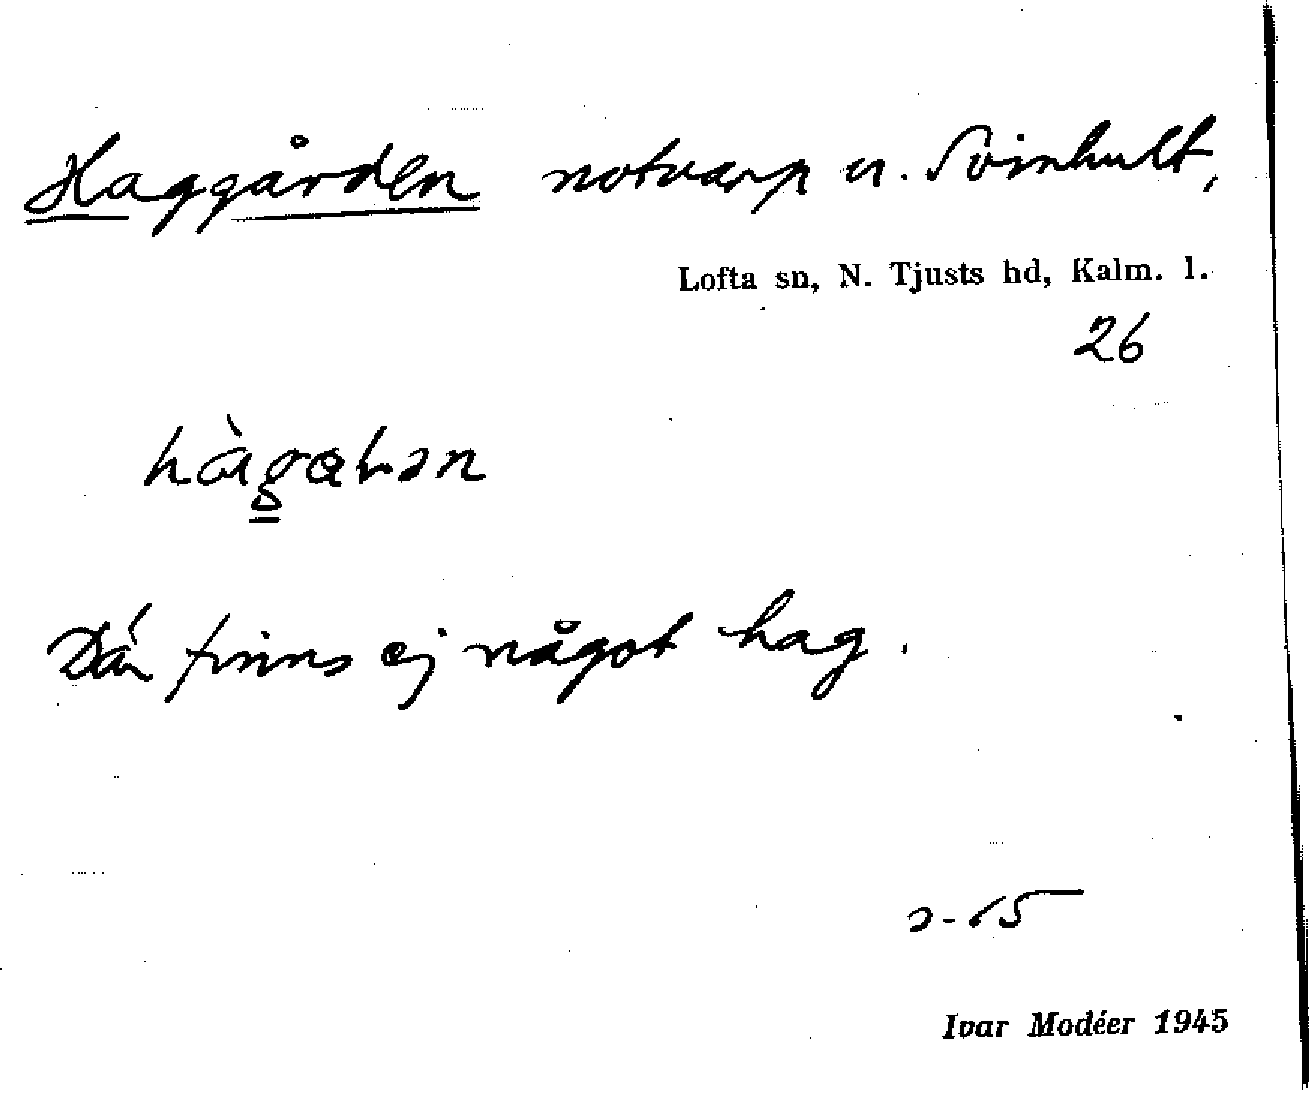 Haggården notvarp u. Svinhult,
Lofta sn, N. Tjusts hd, Kalm. l.
26
Där finns ej något hag.
Ivar Modéer 1945